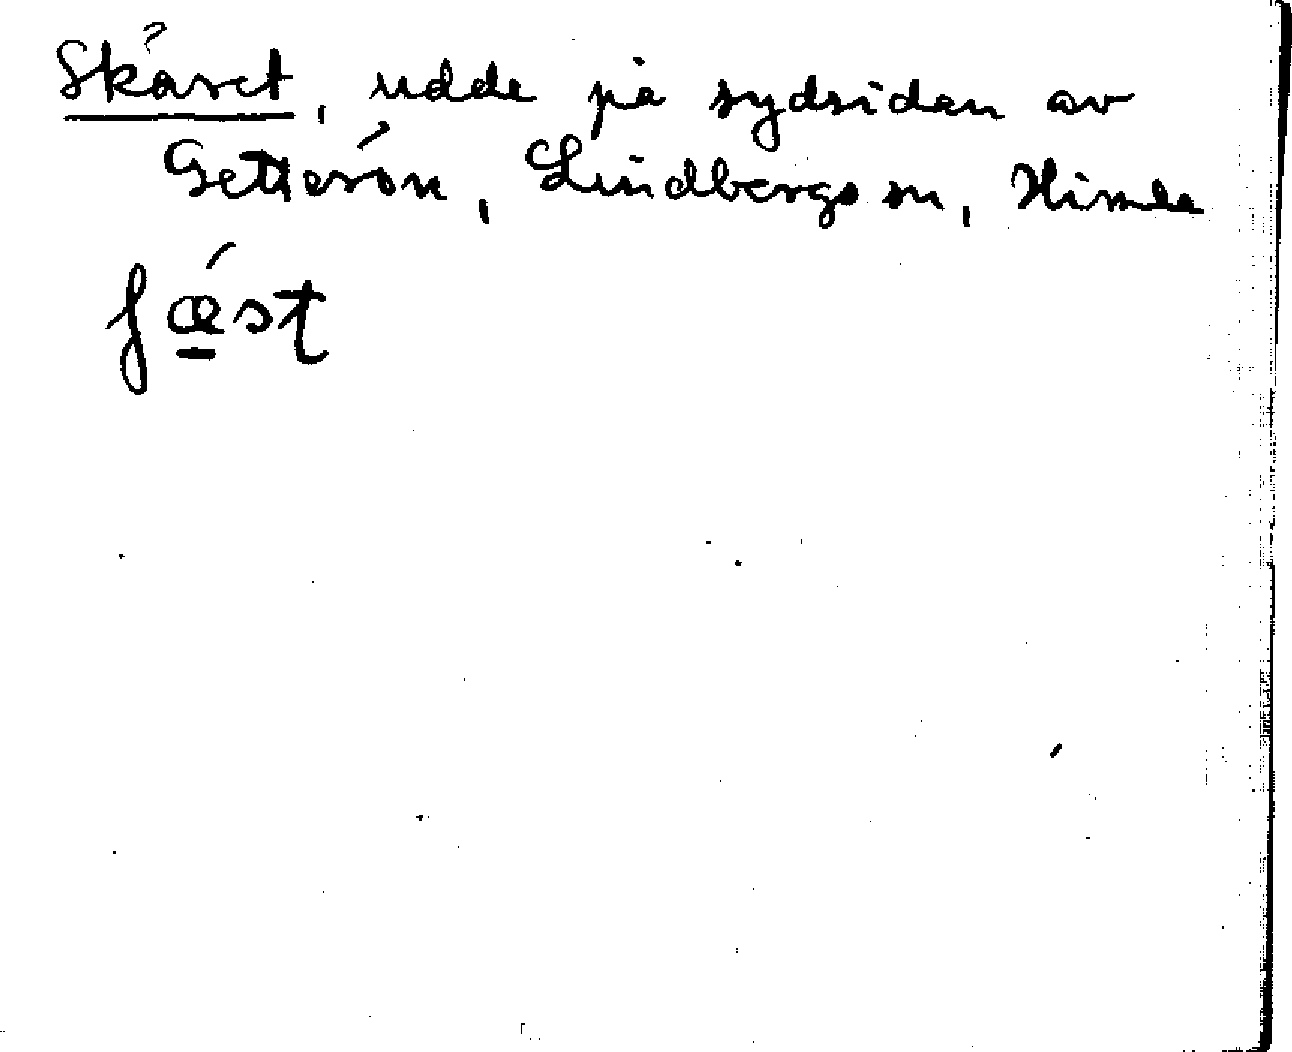 Skäret, udde på sydsidan av
Getterön, Lindbergs sn, Himle
ʃǽst